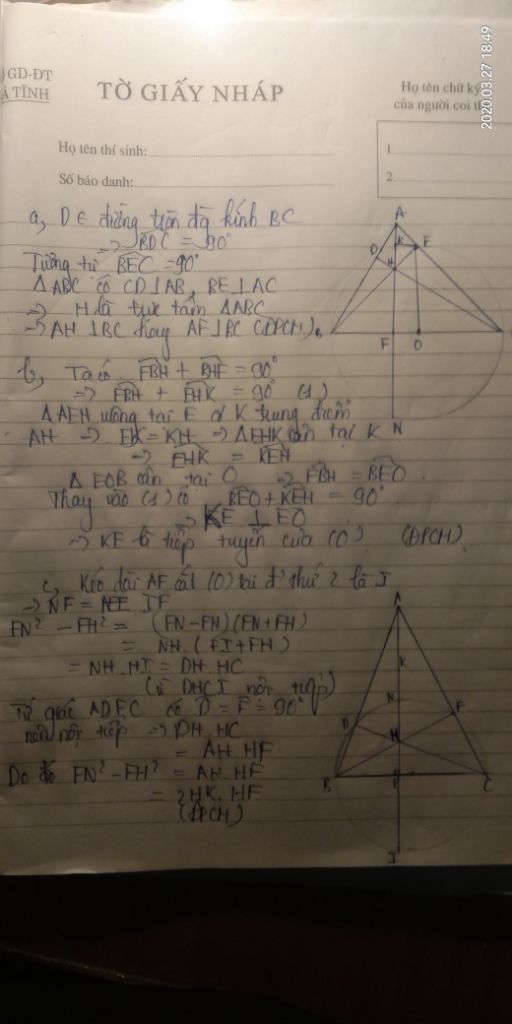 GD-ĐT
À TĨNH
TỜ GIẤY NHÁP
Họ tên chữ ký
của người coi th
2020.03.27 18:49
Họ tên thí sinh:
Số báo danh:
1
2
a, D ∈ đường tròn đg kính BC
=> BDC = 90°
Tương tự BEC = 90°
Δ ABC có CD ⊥ AB, BE ⊥ AC
=> H là trực tâm ΔABC
-> AH ⊥ BC hay AF ⊥ BC (ĐPCM)
A
D
K
E
H
B
F
O
N
b, Ta có FBH + BHF = 90°
=> FBH + EHK = 90° (1)
Δ AEH vuông tại E có K trung điểm
AH => EK = KH => Δ EHK cân tại K
=> EHK = KEH
Δ EOB cân tại O => FBH = BEO
Thay vào (1) có BEO + KEH = 90°
=> KE ⊥ EO
-> KE là tiếp tuyến của (O) (ĐPCM)
c, Kéo dài AF cắt (O) tại đ' thứ 2 là I
-> NF = IF
FN² - FH² = (FN-FH)(FN+FH)
= NH. (FI+FH)
= NH.HI = DH.HC
(vì DHCI nội tiếp)
Tứ giác ADFC có D = F = 90°
nên nội tiếp => DH.HC
= AH.HF
Do đó FN² - FH² = AH.HF
= 2HK.HF
(ĐPCM)
A
K
N
D
E
H
B
F
C
I